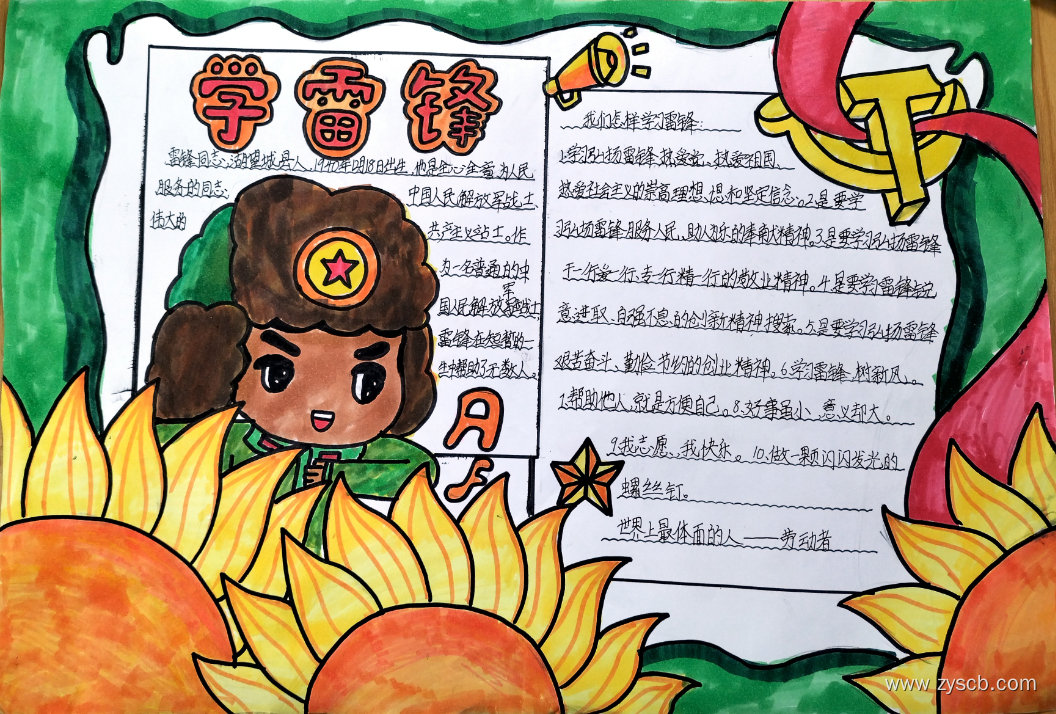 学雷锋
雷锋同志,湖望城县人,1940年12月18日出生,他是全心全意为人民
服务的同志
伟大的
中国人民解放军战士
共产主义站士。作
为一名普通的中
国人民解放军战士
雷锋在短暂的一
生中帮助了无数人。
我们怎样学习雷锋:
1.学习弘扬雷锋热爱党、热爱祖国、
热爱社会主义的崇高理想、和坚定信念。2.是要学
习弘扬雷锋服务人民、助人为乐的奉献精神。3.是要学习弘扬雷锋
干一行爱一行、专一行精一行的敬业精神。4.是要学习雷锋锐
意进取、自强不息的创新精神搜索。5.是要学习弘扬雷锋
艰苦奋斗、勤俭节约的创业精神。6.学习雷锋,树新风。
7.帮助他人,就是方便自己。8.好事虽小、意义却大。
9.我志愿、我快乐。10.做一颗闪闪发光的
螺丝钉。
世界上最体面的人——劳动者
www.zyscb.com